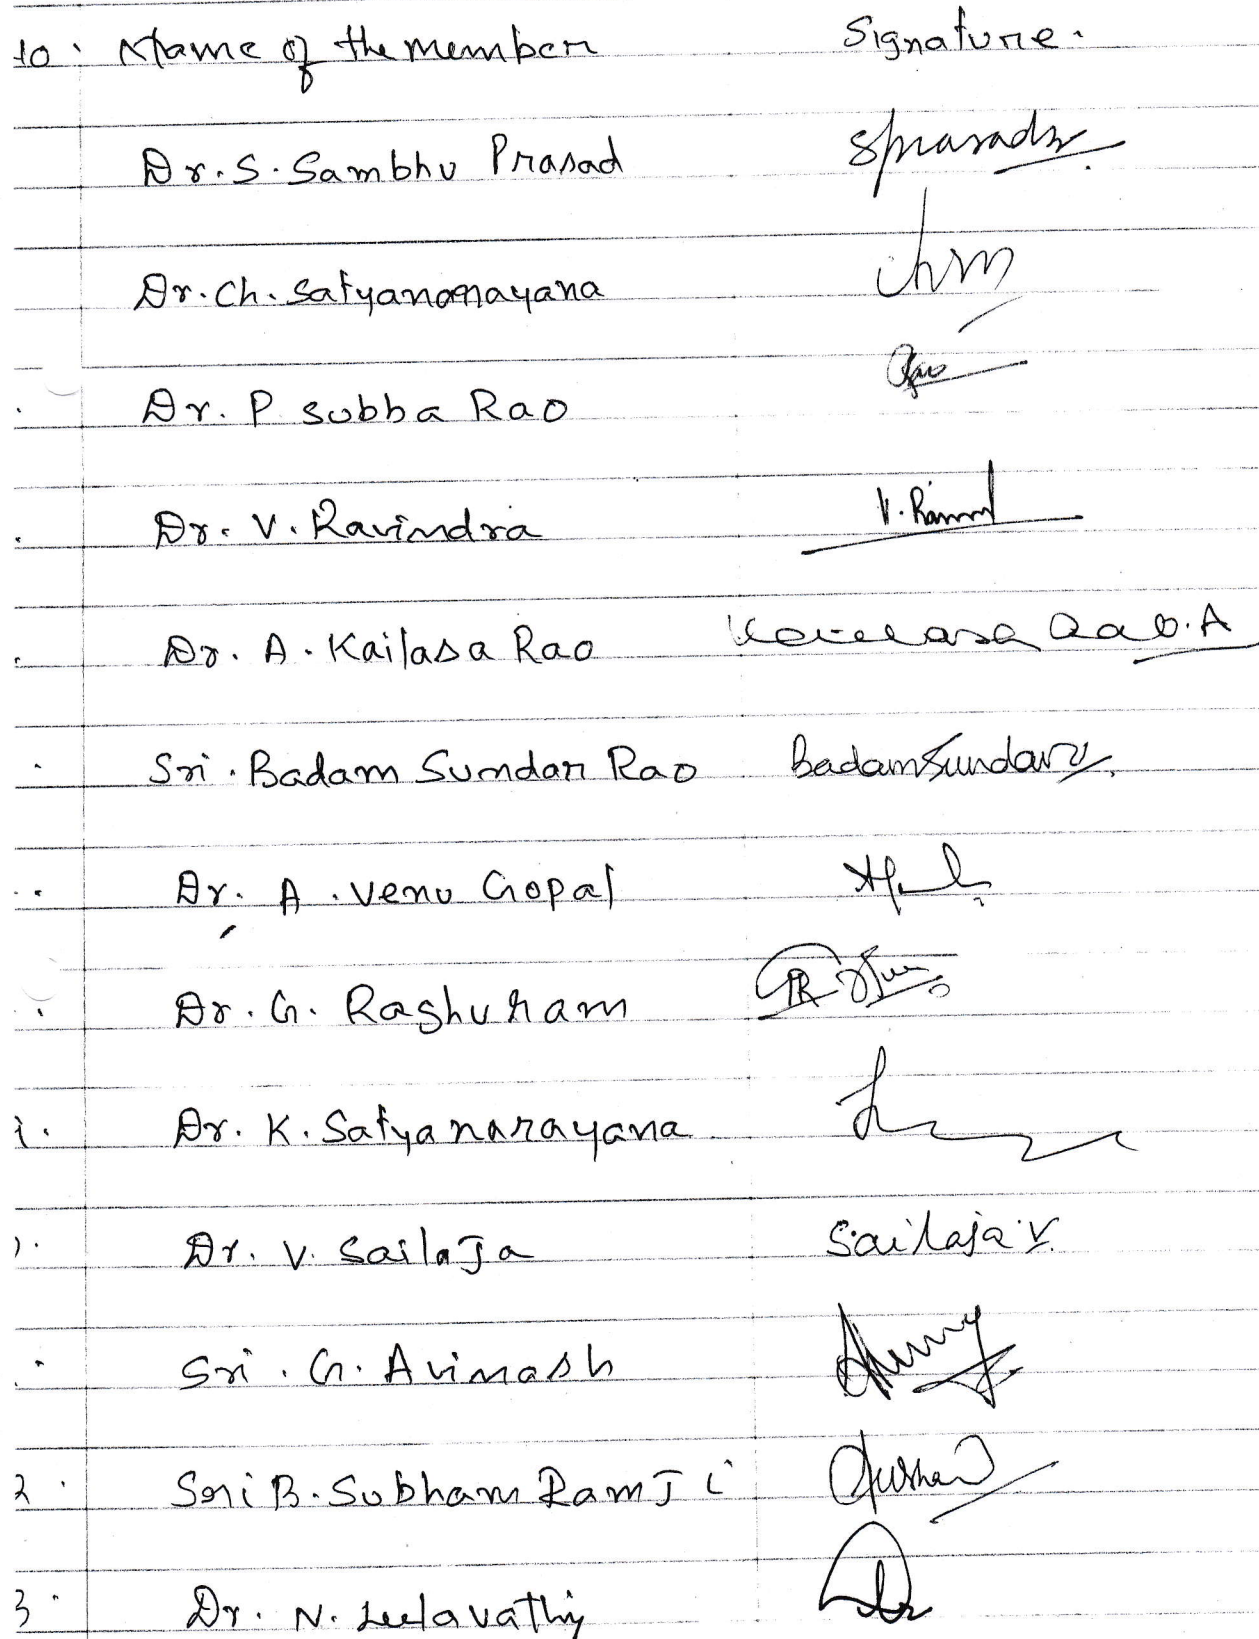 10. Name of the member Signature.
Dr. S. Sambhu Prasad Sprasad
Dr. Ch. Satyanarayana
Dr. P Subba Rao Rao
Dr. V. Ravindra
Dr. A. Kailasa Rao Kailasa Rao.A
Sri. Badam Sundar Rao BadamSundar
Dr. A. Venu Gopal
Dr. G. Raghuram
i. Dr. K. Satyanarayana
). Dr. V. Sailaja Sailaja V.
Sri. G. Avinash
2. Sri B. Subham Ram Ji
3. Dr. N. Leelavathy